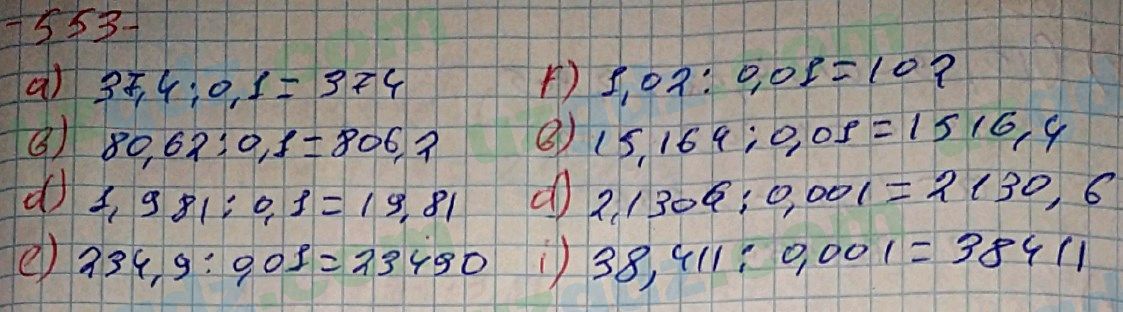 -553-
a) 37,4:0,1=374
f) 1,02:0,01=102
b) 80,62:0,1=806,2
e) 15,164:0,01=1516,4
d) 1,981:0,1=19,81
d) 2,1306:0,001=2130,6
e) 234,9:0,01=23490
i) 38,411:0,001=38411